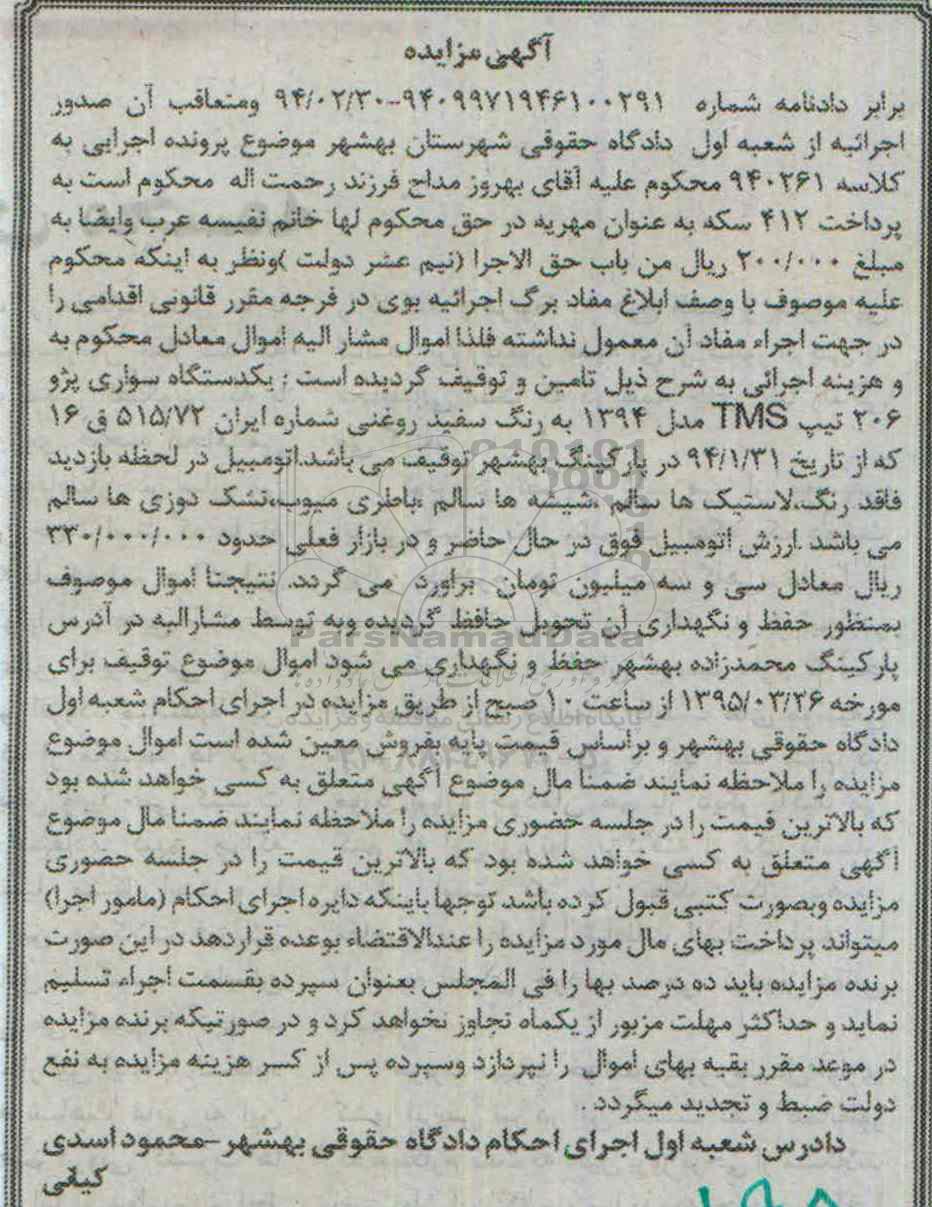 آگهی مزایده
برابر دادنامه شماره ۹۴۰۹۹۷۱۹۴۶۱۰۰۲۹۱-۹۴/۰۲/۳۰ ومتعاقب آن صدور
اجرائیه از شعبه اول دادگاه حقوقی شهرستان بهشهر موضوع پرونده اجرایی به
کلاسه ۹۴۰۲۶۱ محکوم علیه آقای بهروز مداح فرزند رحمت اله محکوم است به
پرداخت ۴۱۲ سکه به عنوان مهریه در حق محکوم لها خانم نفیسه عرب وایضا به
مبلغ ۲۰۰/۰۰۰ ریال من باب حق الاجرا (نیم عشر دولت )ونظر به اینکه محکوم
علیه موصوف با وصف ابلاغ مفاد برگ اجرائیه بوی در فرجه مقرر قانونی اقدامی را
در جهت اجراء مفاد آن معمول نداشته فلذا اموال مشار الیه اموال معادل محکوم به
و هزینه اجرائی به شرح ذیل تامین و توقیف گردیده است : یکدستگاه سواری پژو
۲۰۶ تیپ TMS مدل ۱۳۹۴ به رنگ سفید روغنی شماره ایران ۵۱۵/۷۲ ق ۱۶
که از تاریخ ۹۴/۱/۳۱ در پارکینگ بهشهر توقیف می باشد.اتومبیل در لحظه بازدید
فاقد رنگ،لاستیک ها سالم ،شیشه ها سالم ،باطری میوب،تشک دوزی ها سالم
می باشد .ارزش اتومبیل فوق در حال حاضر و در بازار فعلی حدود ۳۳۰/۰۰۰/۰۰۰
ریال معادل سی و سه میلیون تومان براورد می گردد. نتیجتا اموال موصوف
بمنظور حفظ و نگهداری آن تحویل حافظ گردیده وبه توسط مشارالیه در آدرس
ParsNamadData
پارکینگ محمدزاده بهشهر حفظ و نگهداری می شود اموال موضوع توقیف برای
مورخه ۱۳۹۵/۰۳/۲۶ از ساعت ۱۰ صبح از طریق مزایده در اجرای احکام شعبه اول
دادگاه حقوقی بهشهر و براساس قیمت پایه بفروش معین شده است اموال موضوع
مزایده را ملاحظه نمایند ضمنا مال موضوع آگهی متعلق به کسی خواهد شده بود
که بالاترین قیمت را در جلسه حضوری مزایده را ملاحظه نمایند ضمنا مال موضوع
آگهی متعلق به کسی خواهد شده بود که بالاترین قیمت را در جلسه حضوری
مزایده وبصورت کتبی قبول کرده باشد، توجها باینکه دایره اجرای احکام (مامور اجرا)
میتواند پرداخت بهای مال مورد مزایده را عندالاقتضاء بوعده قراردهد در این صورت
برنده مزایده باید ده درصد بها را فی المجلس بعنوان سپرده بقسمت اجراء تسلیم
نماید و حداکثر مهلت مزبور از یکماه تجاوز نخواهد کرد و در صورتیکه برنده مزایده
در موعد مقرر بقیه بهای اموال را نپردازد وسپرده پس از کسر هزینه مزایده به نفع
دولت ضبط و تجدید میگردد .
دادرس شعبه اول اجرای احکام دادگاه حقوقی بهشهر -محمود اسدی
کیافی